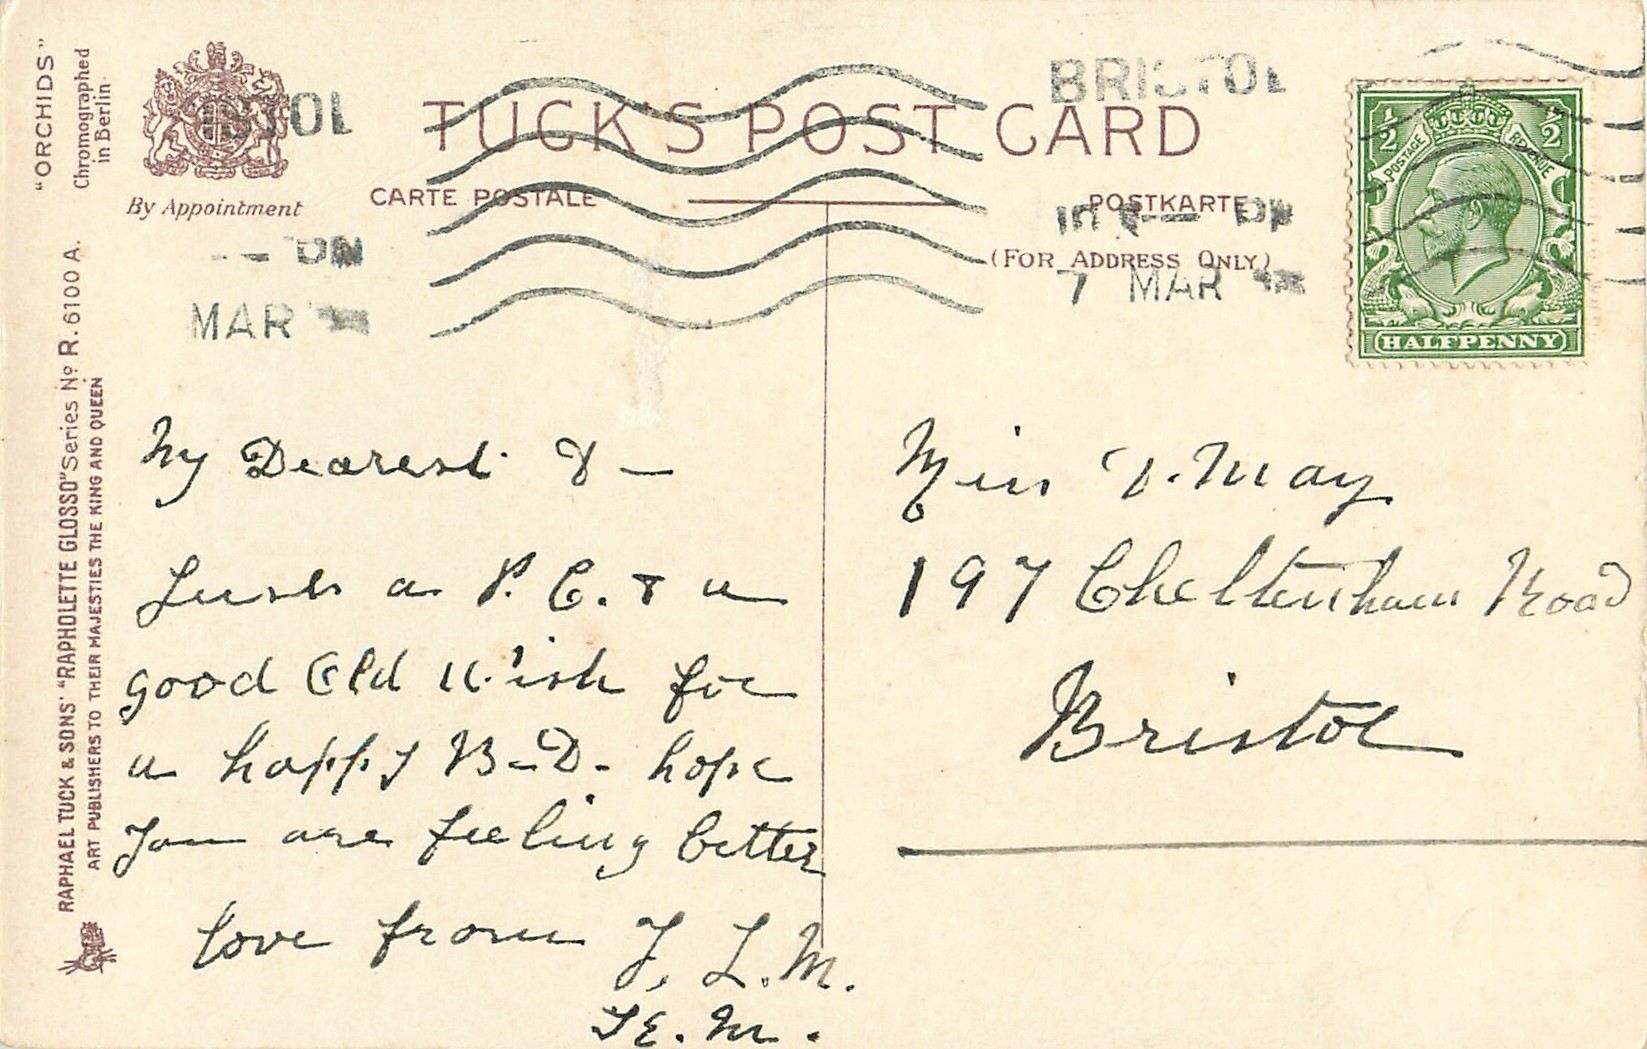 "ORCHIDS"
Chromographed
in Berlin
RAPHAEL TUCK & SONS' "RAPHOLETTE GLOSSO" Series No R. 6100 A.
ART PUBLISHERS TO THEIR MAJESTIES THE KING AND QUEEN
By Appointment
TUCK'S POST CARD
CARTE POSTALE
POSTKARTE
(FOR ADDRESS ONLY)
STOL
PM
MAR
BRISTOL
PM
7 MAR
1/2 1/2
POSTAGE REVENUE
HALFPENNY
My Dearest
Just a P. C. & a
good Old Wish for
a happy B-D- hope
you are feeling better
love from J. L. M.
J E. M.
Miss May
197 Cheltenham Road
Bristol